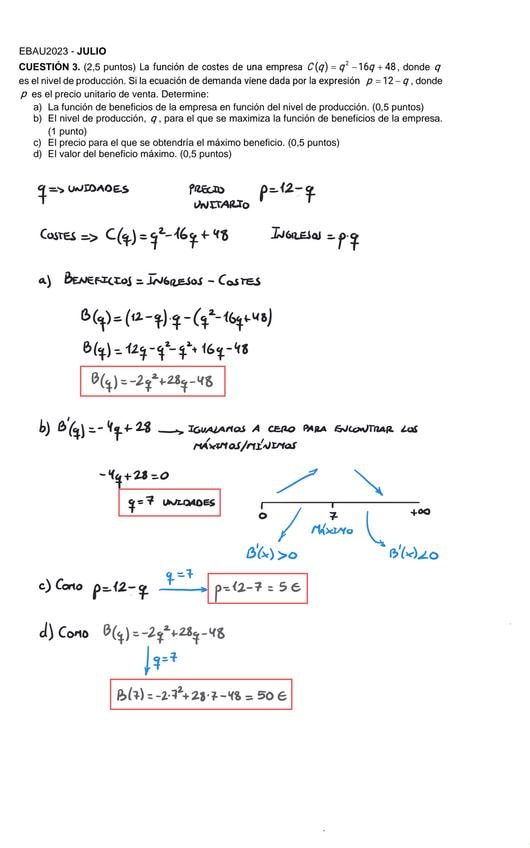 EBAU2023 - JULIO
CUESTIÓN 3. (2,5 puntos) La función de costes de una empresa C(q) = q² − 16q + 48, donde q
es el nivel de producción. Si la ecuación de demanda viene dada por la expresión p = 12 − q, donde
p es el precio unitario de venta. Determine:
a) La función de beneficios de la empresa en función del nivel de producción. (0,5 puntos)
b) El nivel de producción, q, para el que se maximiza la función de beneficios de la empresa.
(1 punto)
c) El precio para el que se obtendría el máximo beneficio. (0,5 puntos)
d) El valor del beneficio máximo. (0,5 puntos)
q => UNIDADES PRECIO UNITARIO p=12-q
COSTES => C(q) = q²-16q+48 INGRESOS = p·q
a) BENEFICIOS = INGRESOS - COSTES
B(q) = (12-q)·q-(q²-16q+48)
B(q) = 12q-q²-q²+16q-48
B(q) = -2q²+28q-48
b) B'(q) = -4q+28 → IGUALAMOS A CERO PARA ENCONTRAR LOS
MÁXIMOS/MÍNIMOS
-4q+28=0
q=7 UNIDADES
0 7 +∞
MÁXIMO
B'(x)>0 B'(x)<0
c) COMO p=12-q q=7 p=12-7 = 5 €
d) COMO B(q) = -2q²+28q-48
q=7
B(7) = -2·7²+28·7-48 = 50 €